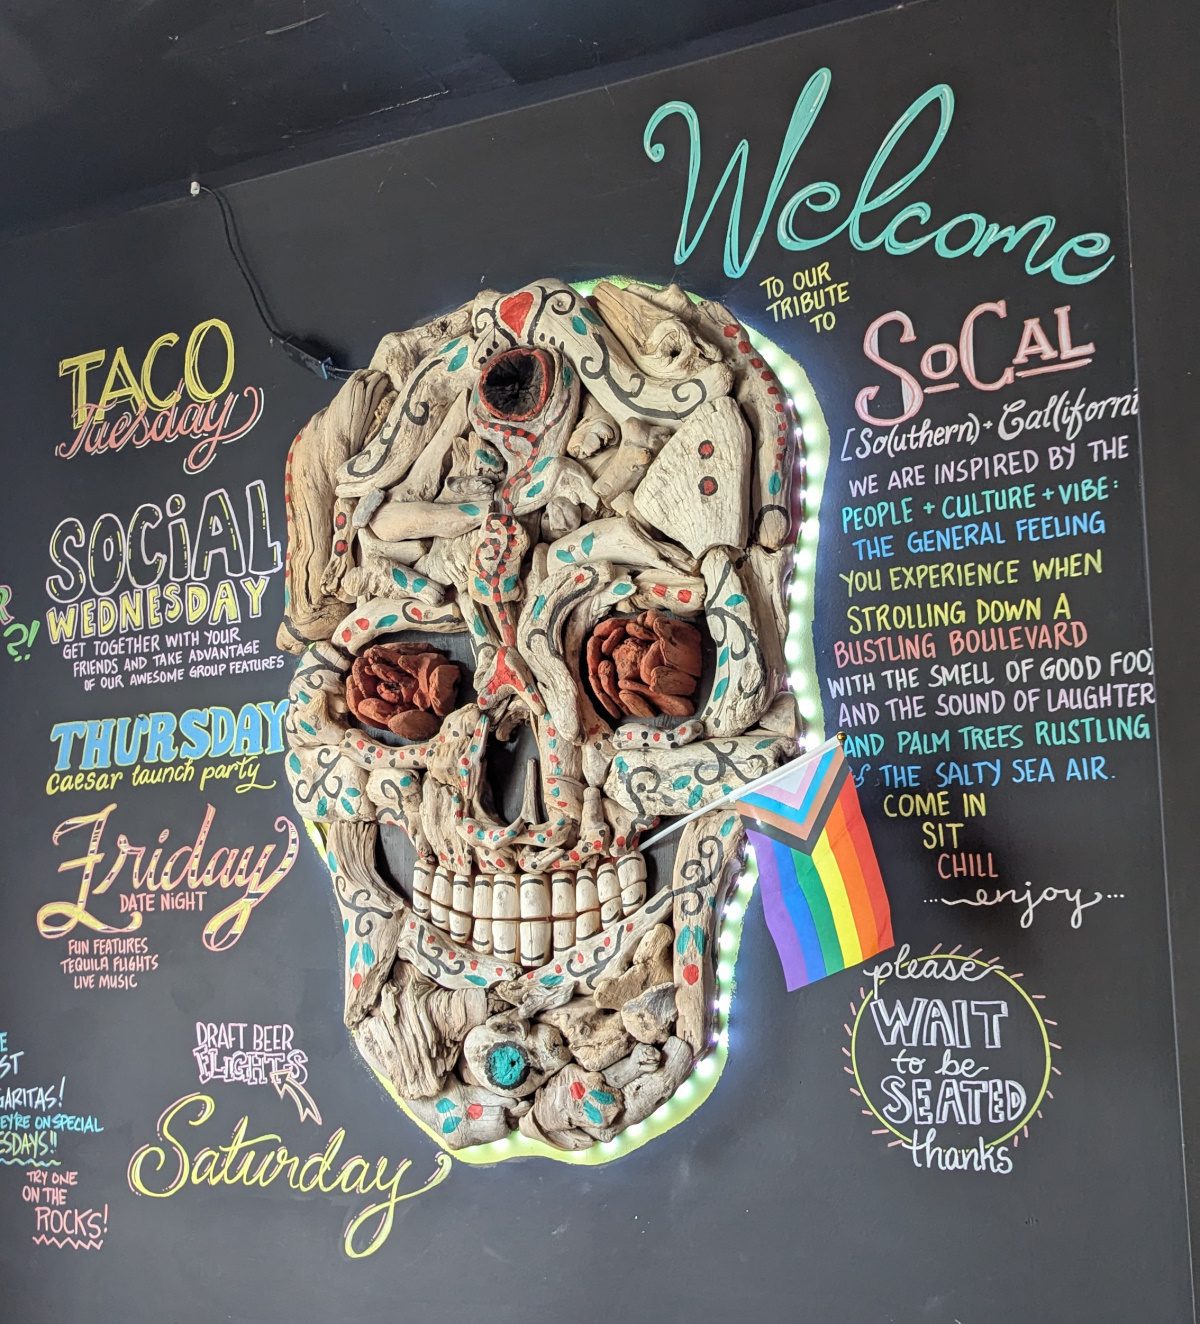 Welcome
TO OUR
TRIBUTE
TO
SoCAL
[So(uthern) + Cal(iforni
WE ARE INSPIRED BY THE
PEOPLE + CULTURE + VIBE:
THE GENERAL FEELING
YOU EXPERIENCE WHEN
STROLLING DOWN A
BUSTLING BOULEVARD
WITH THE SMELL OF GOOD FOO
AND THE SOUND OF LAUGHTER
AND PALM TREES RUSTLING
THE SALTY SEA AIR.
COME IN
SIT
CHILL
...enjoy...
please
WAIT
to be
SEATED
thanks
TACO
Tuesday
SOCiAL
WEDNESDAY
GET TOGETHER WITH YOUR
FRIENDS AND TAKE ADVANTAGE
OF OUR AWESOME GROUP FEATURES
THURSDAY
caesar launch party
Friday
DATE NiGHT
FUN FEATURES
TEQUILA FLIGHTS
LIVE MUSIC
DRAFT BEER
FLIGHTS
Saturday
R
?!
E
ST
GARITAS!
EY'RE ON SPECIAL
ESDAYS!!
TRY ONE
ON THE
ROCKS!